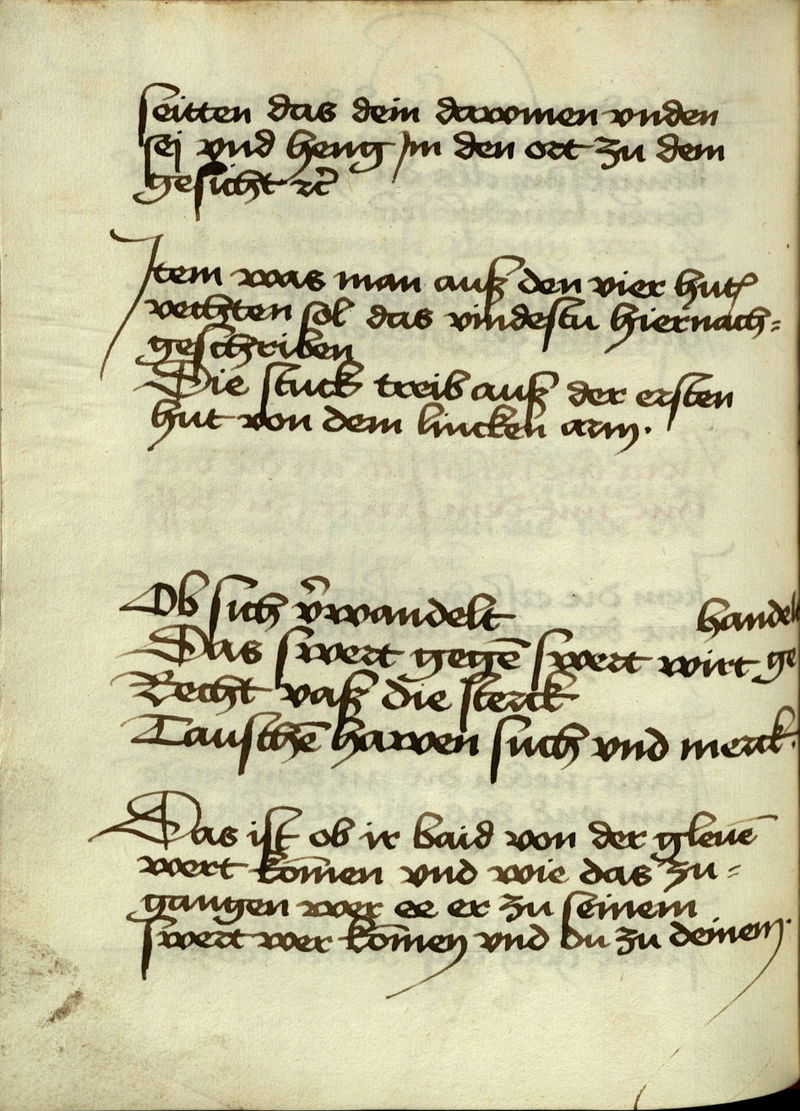 seitten das dein dawmen vnden
sej vnd heng jm den ort zu dem
gesicht rc̃
Jtem was man auß den vier hut
vechten sol das vindestu hiernach=
geschriben
Die stuck treib auß der ersten
hut von dem lincken arm.
Ob sich v̄wandelt handel
Das swert gegē swert wirt ge
Recht vaß die sterck
Tauschē hawen such vnd merck.
Das ist ob ir baid von der gleuē
wert kom̄en vnd wie das zu=
gangen wer ee er zu seinem
swert wer kom̄en vnd du zu deinem.